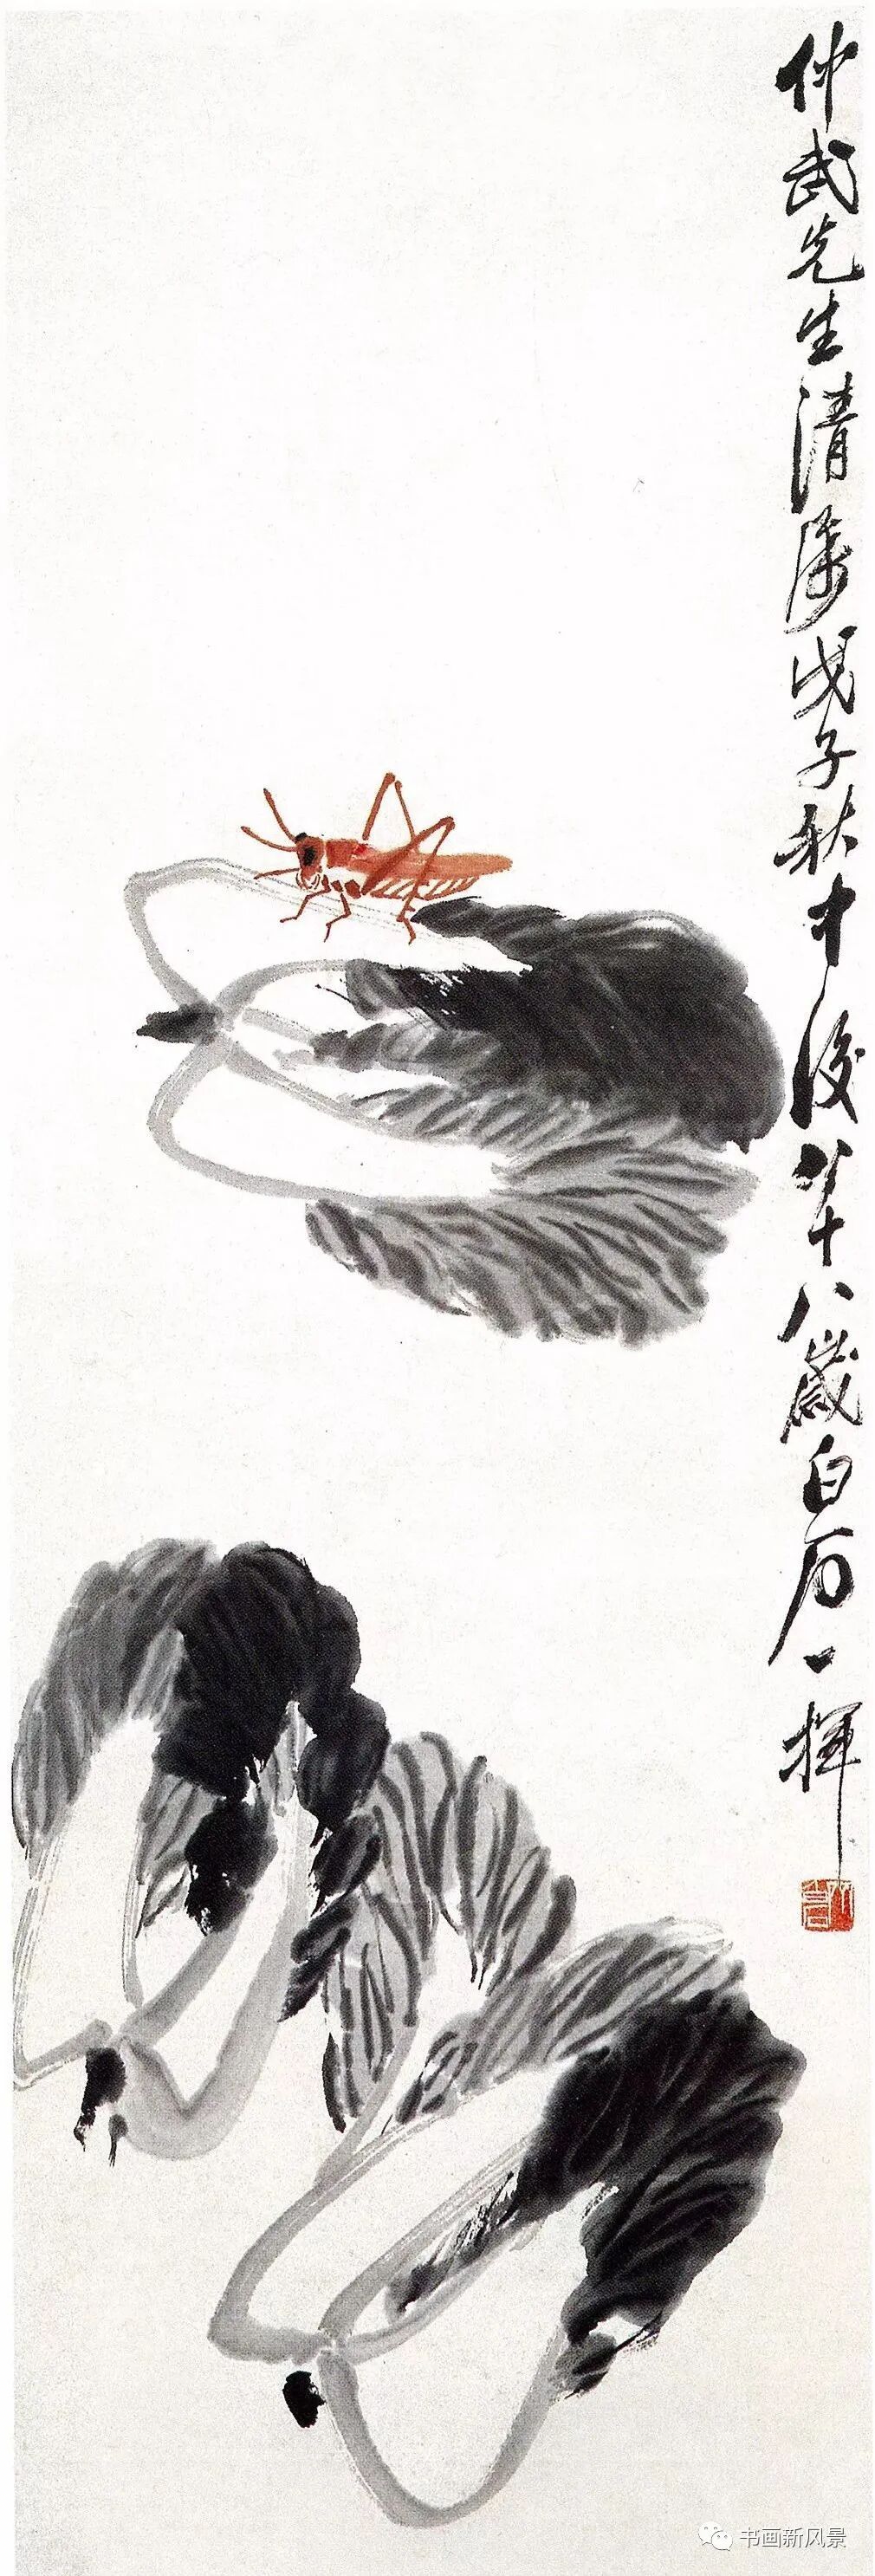 仲武先生清屬戊子秋中後八十八歲白石一揮
书画新风景